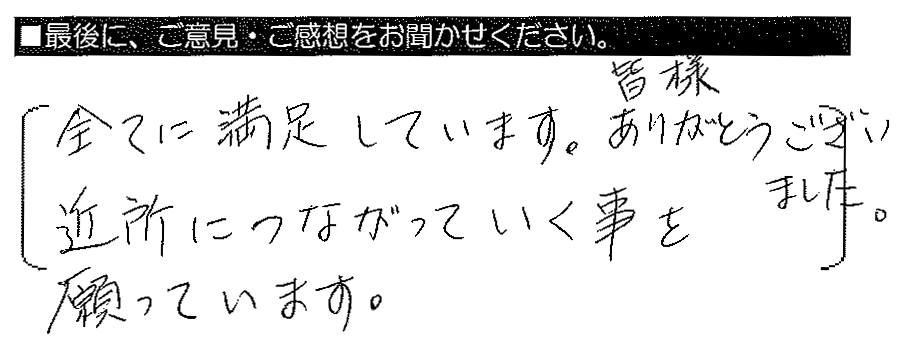 ■最後に、ご意見・ご感想をお聞かせください。
皆様
全てに満足しています。ありがとうござい
ました。
近所につながっていく事を
願っています。